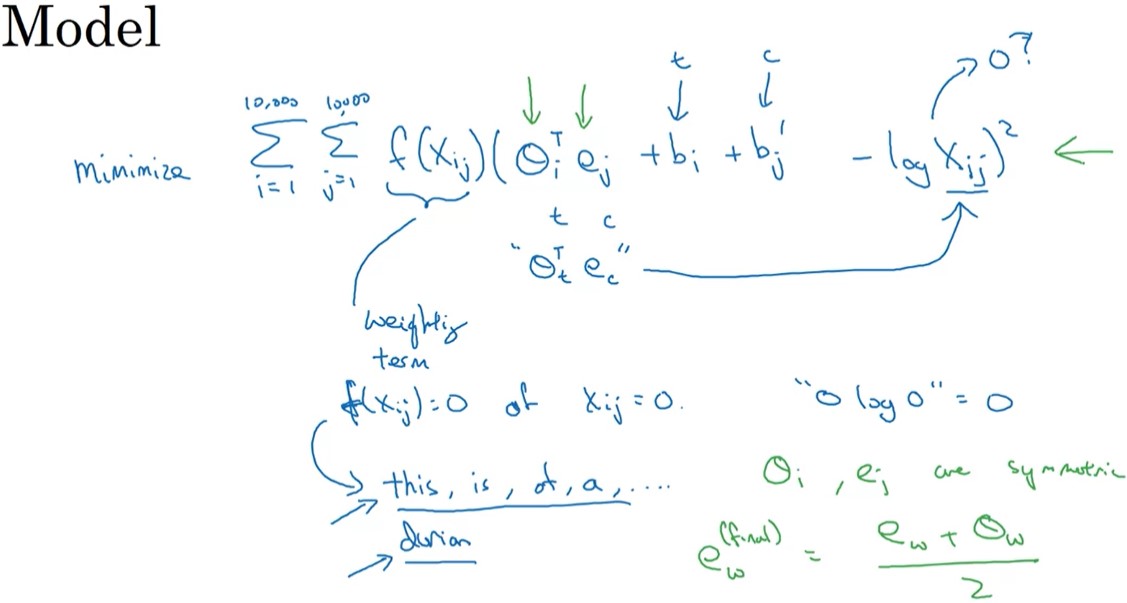 Model
t c 0?
minimize 10,000 Σ i=1 10,000 Σ j=1 f(Xij)(θi^T ej + bi + bj' - log Xij)^2
t c
"θt^T ec"
weighting
term
f(Xij)=0 if Xij=0. "0 log 0" = 0
this, is, of, a, .... θi, ej are symmetric
durian
ew^(final) = (ew + θw) / 2